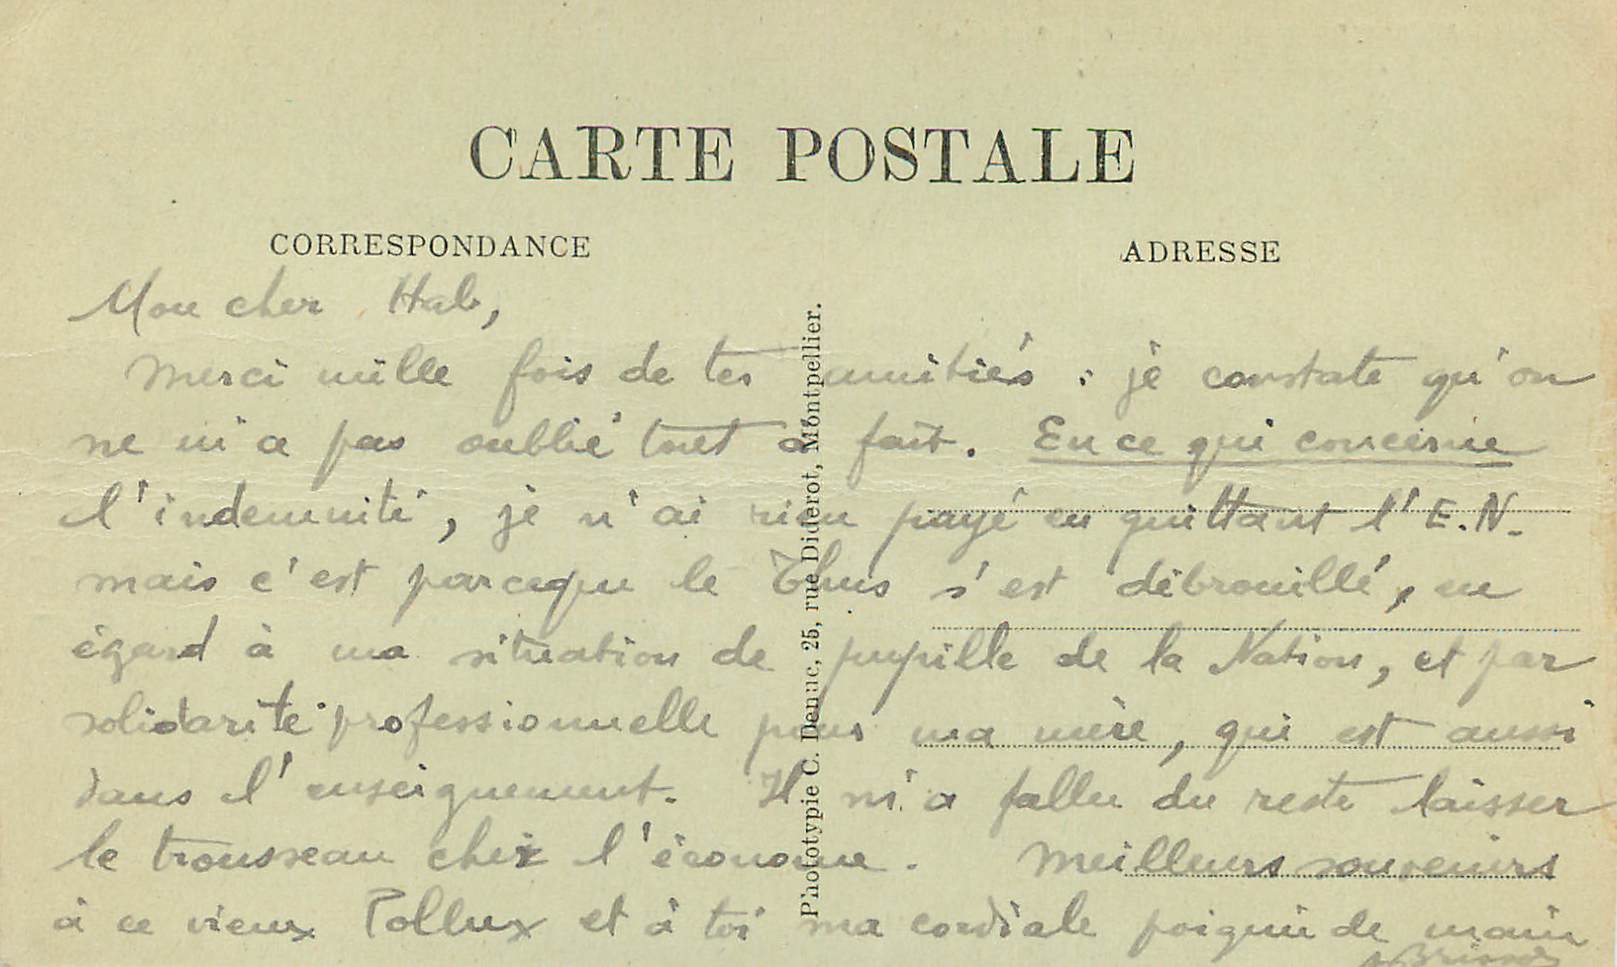 CARTE POSTALE
CORRESPONDANCE
ADRESSE
Mon cher Hab,
Merci mille fois de tes amitiés : je constate qu'on
ne m'a pas oublié tout à fait. En ce qui concerne
l'indemnité, je n'ai rien payé en quittant l'E.N.
mais c'est parceque le Thus s'est débrouillé, eu
égard à ma situation de pupille de la Nation, et par
solidarité professionnelle pour ma mère, qui est aussi
dans l'enseignement. Il m'a fallu du reste laisser
le trousseau chez l'économe. Meilleurs souvenirs
à ce vieux Pollux et à toi ma cordiale poignée de main
Phototypie C. Denuc, 25, rue Diderot, Montpellier.